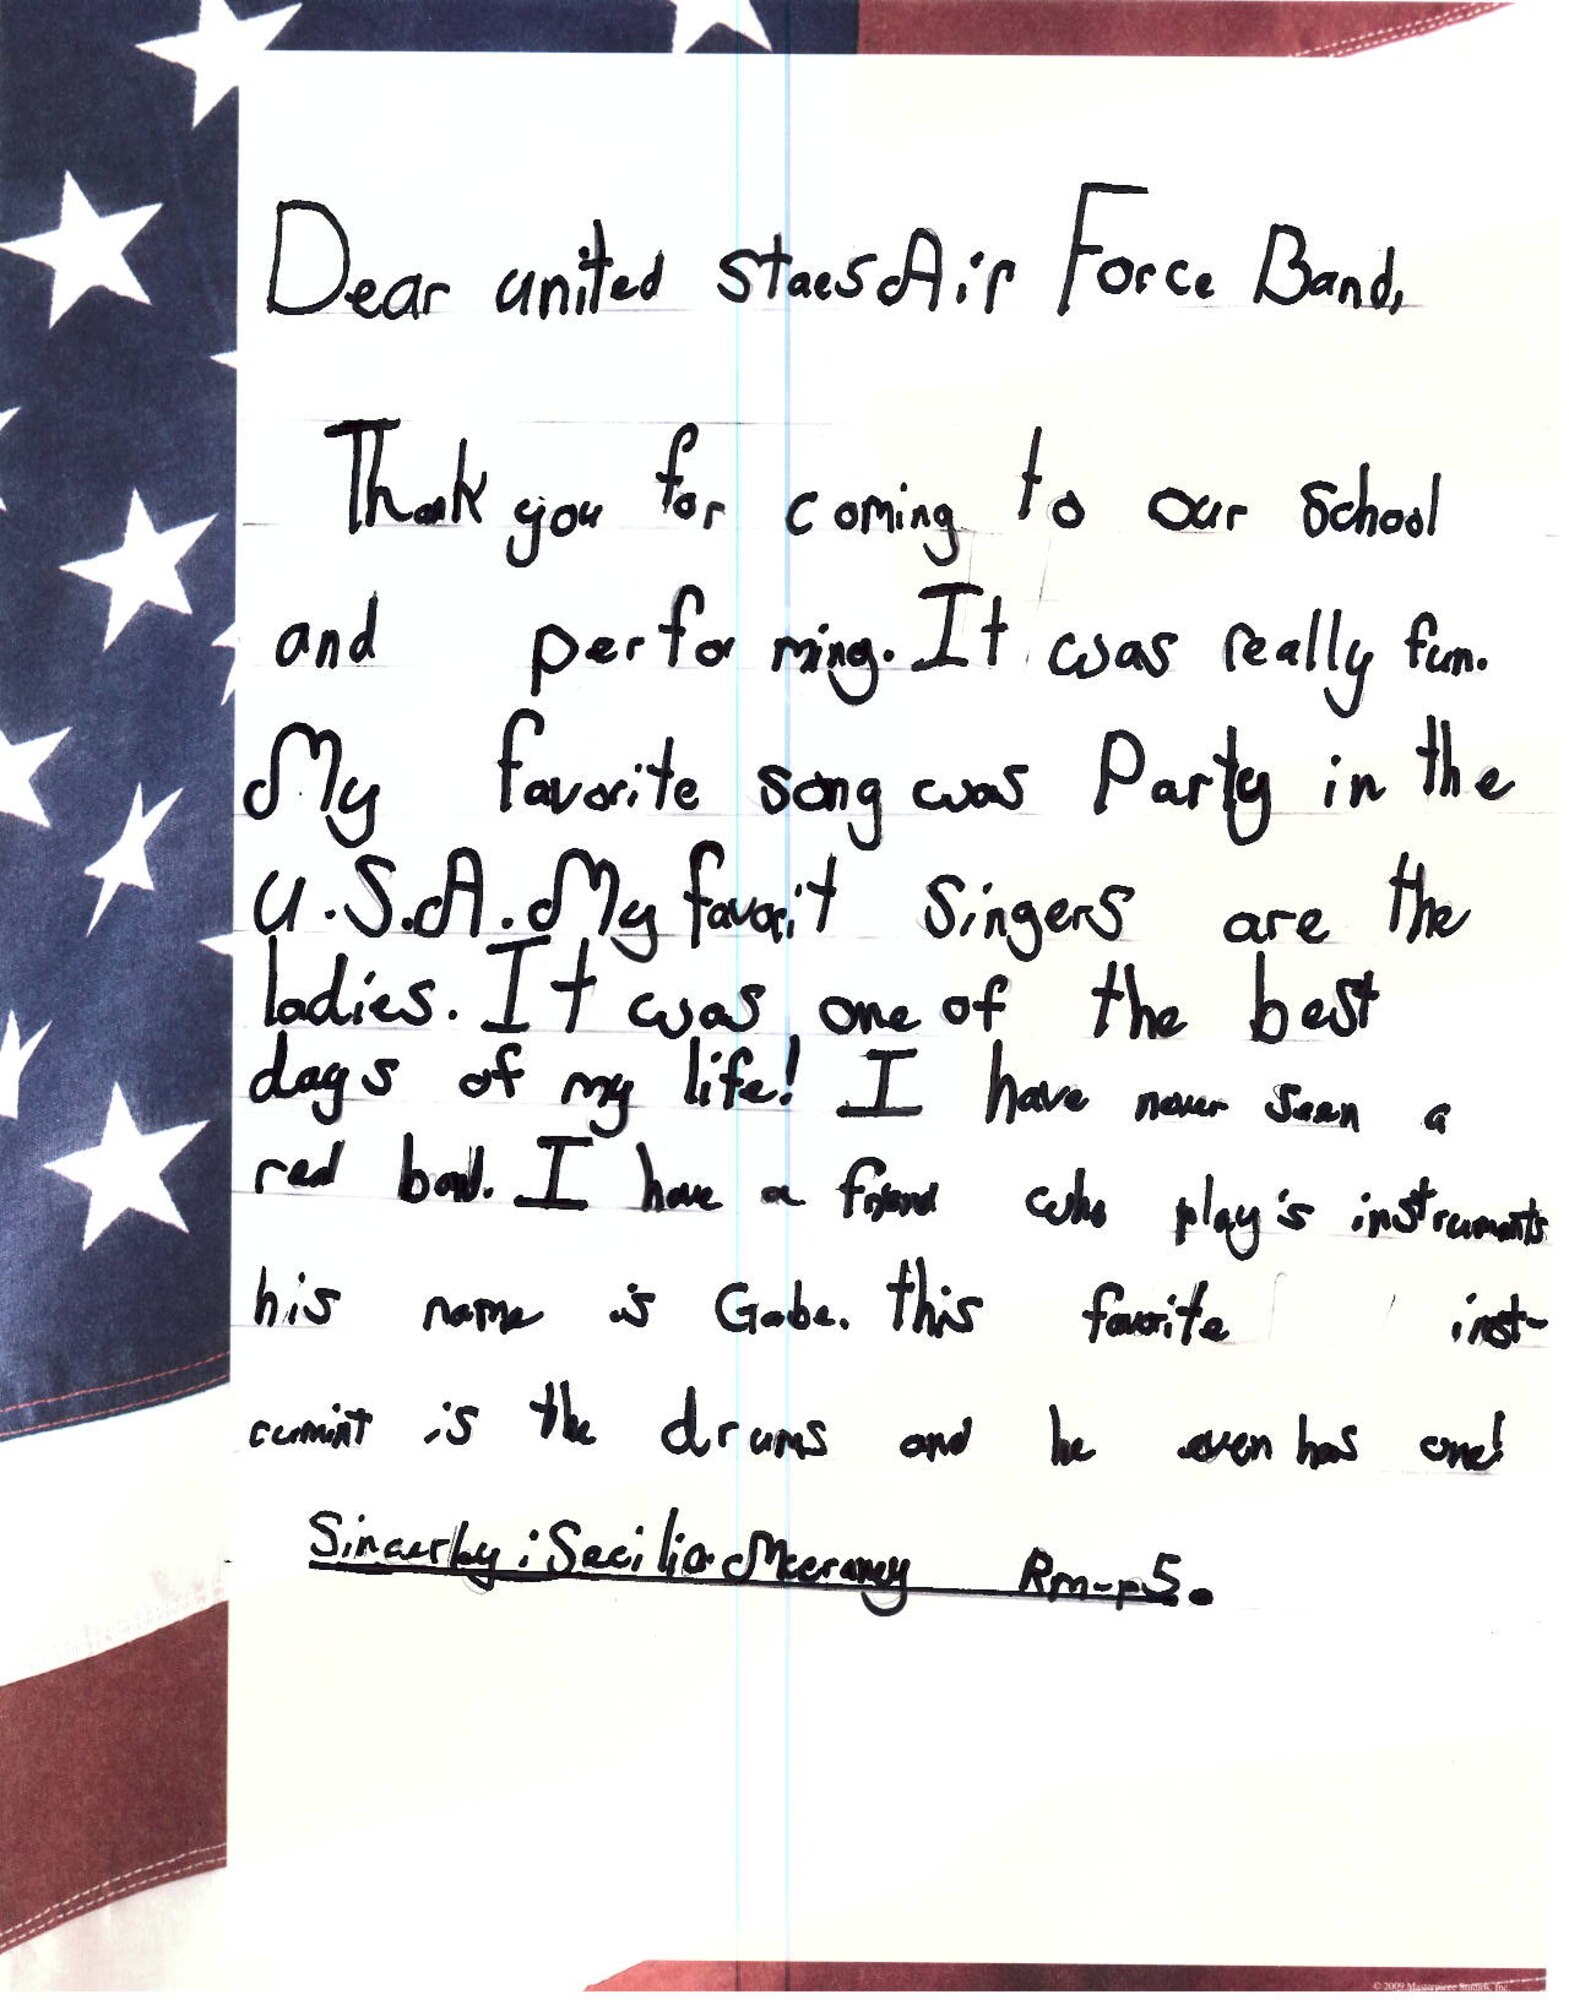 Dear united staes Air Force Band,
Thank you for coming to our school
and performing. It was really fun.
My favorite song was Party in the
U.S.A. My favorit singers are the
ladies. It was one of the best
days of my life! I have never seen a
red band. I have a friend who play's instruments
his name is Gabe. this favorite inst-
rumint is the drums and he even has one!
Sincerley: Secilia Mccraney Rm-r5.
© 2009 Masterpiece Studios, Inc.